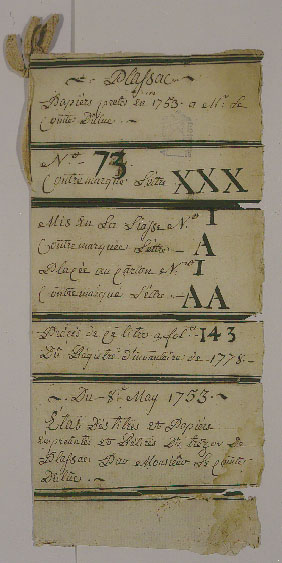 Plassac
Papiers pretés en 1753. a Mr. le
Comte Dulue.
N.o 73
Contremarque Lettre XXX
Mis en La Liasse N.o I
Contremarquée Lettre A
Placée au carton N.o I
Contremarque Lettre AA
de ce titre a fol.o 143
Du Registre d'inventaire de 1778.
Du 8.e May 1753.
Etat des titres et Papiers
empruntés et Retirés Du trezor de
Plassac Par Monsieur Le Comte